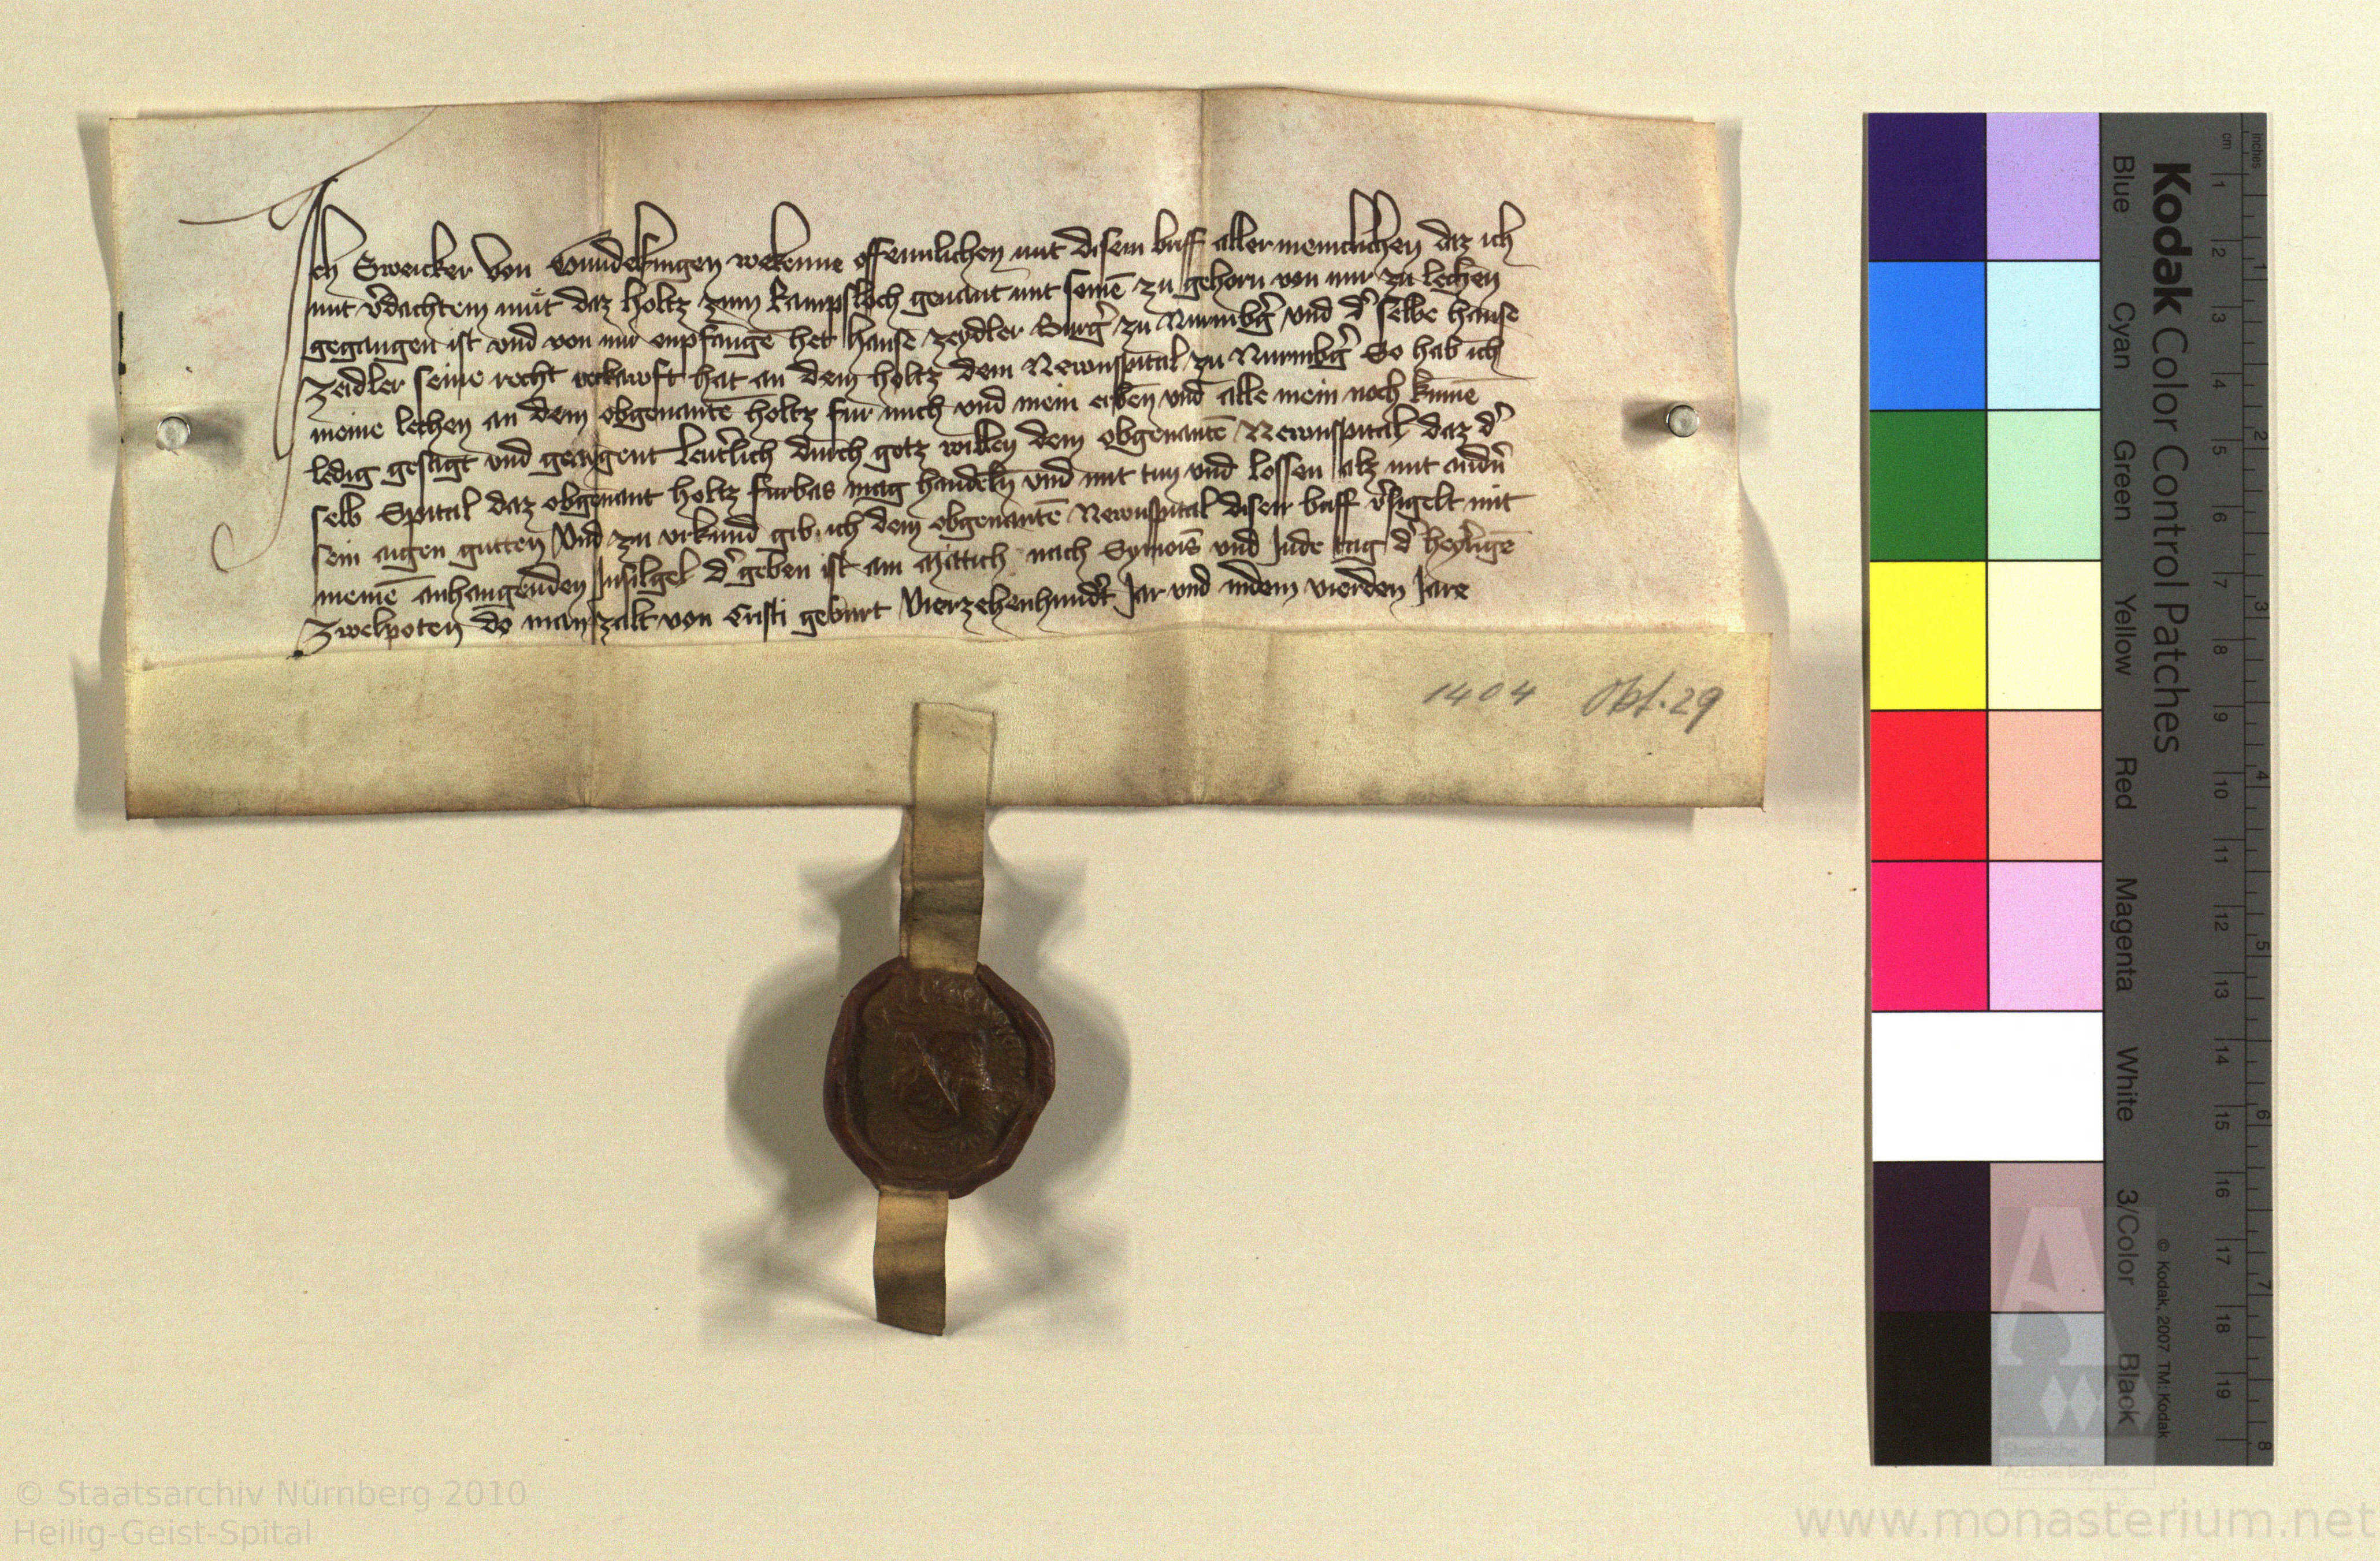 Ich Sweicker von Gundelfingen wekenne offennlichen mit disem briff allermeniclichen daz ich
mit v̉dachtem mut daz holtz zum kampsloch genant mit seinē zu gehorn von mir zu lechen
gegangen ist vnd von mir enpfangē het hanſe zeydler Burg̉ zu Nurmbg̉ vnd d̉ selbe hanſe
Zeidler seine recht verkawft hat an dem holtz dem Newnspital zu Nurmbg̉ So hab ich
meine lechen an dem obgenantē holtz fur mich vnd mein erben vnd alle mein noch kumē
ledig gesagt vnd geaygent leut̉lich durch gotz willen dem obgenantē Newnspital daz d̉
selb Spital daz obgenant holtz furbas mag handeln vnd mit tun vnd lossen alz mit andn̉
sein aigen gutten Vnd zu vrkund gib ich dem obgenantē Newnspital disen briff v̉sigelt mit
meinē anhangenden Insilgel d̉ geben ist am Mittich nach Symois vnd Jude tag d̉ heyligē
Zwelpoten do man zalt von Cristi geburt Vierzehenhund̉t Jar vnd indem vierden Jare
1404 Okt. 29
Kodak Color Control Patches
Blue Cyan Green Yellow Red Magenta White 3/Color Black
© Kodak, 2007 TM: Kodak
cm 1 2 3 4 5 6 7 8 9 10 11 12 13 14 15 16 17 18 19
inches 1 2 3 4 5 6 7 8
Staatliche
Archive Bayerns
© Staatsarchiv Nürnberg 2010
Heilig-Geist-Spital
www.monasterium.net